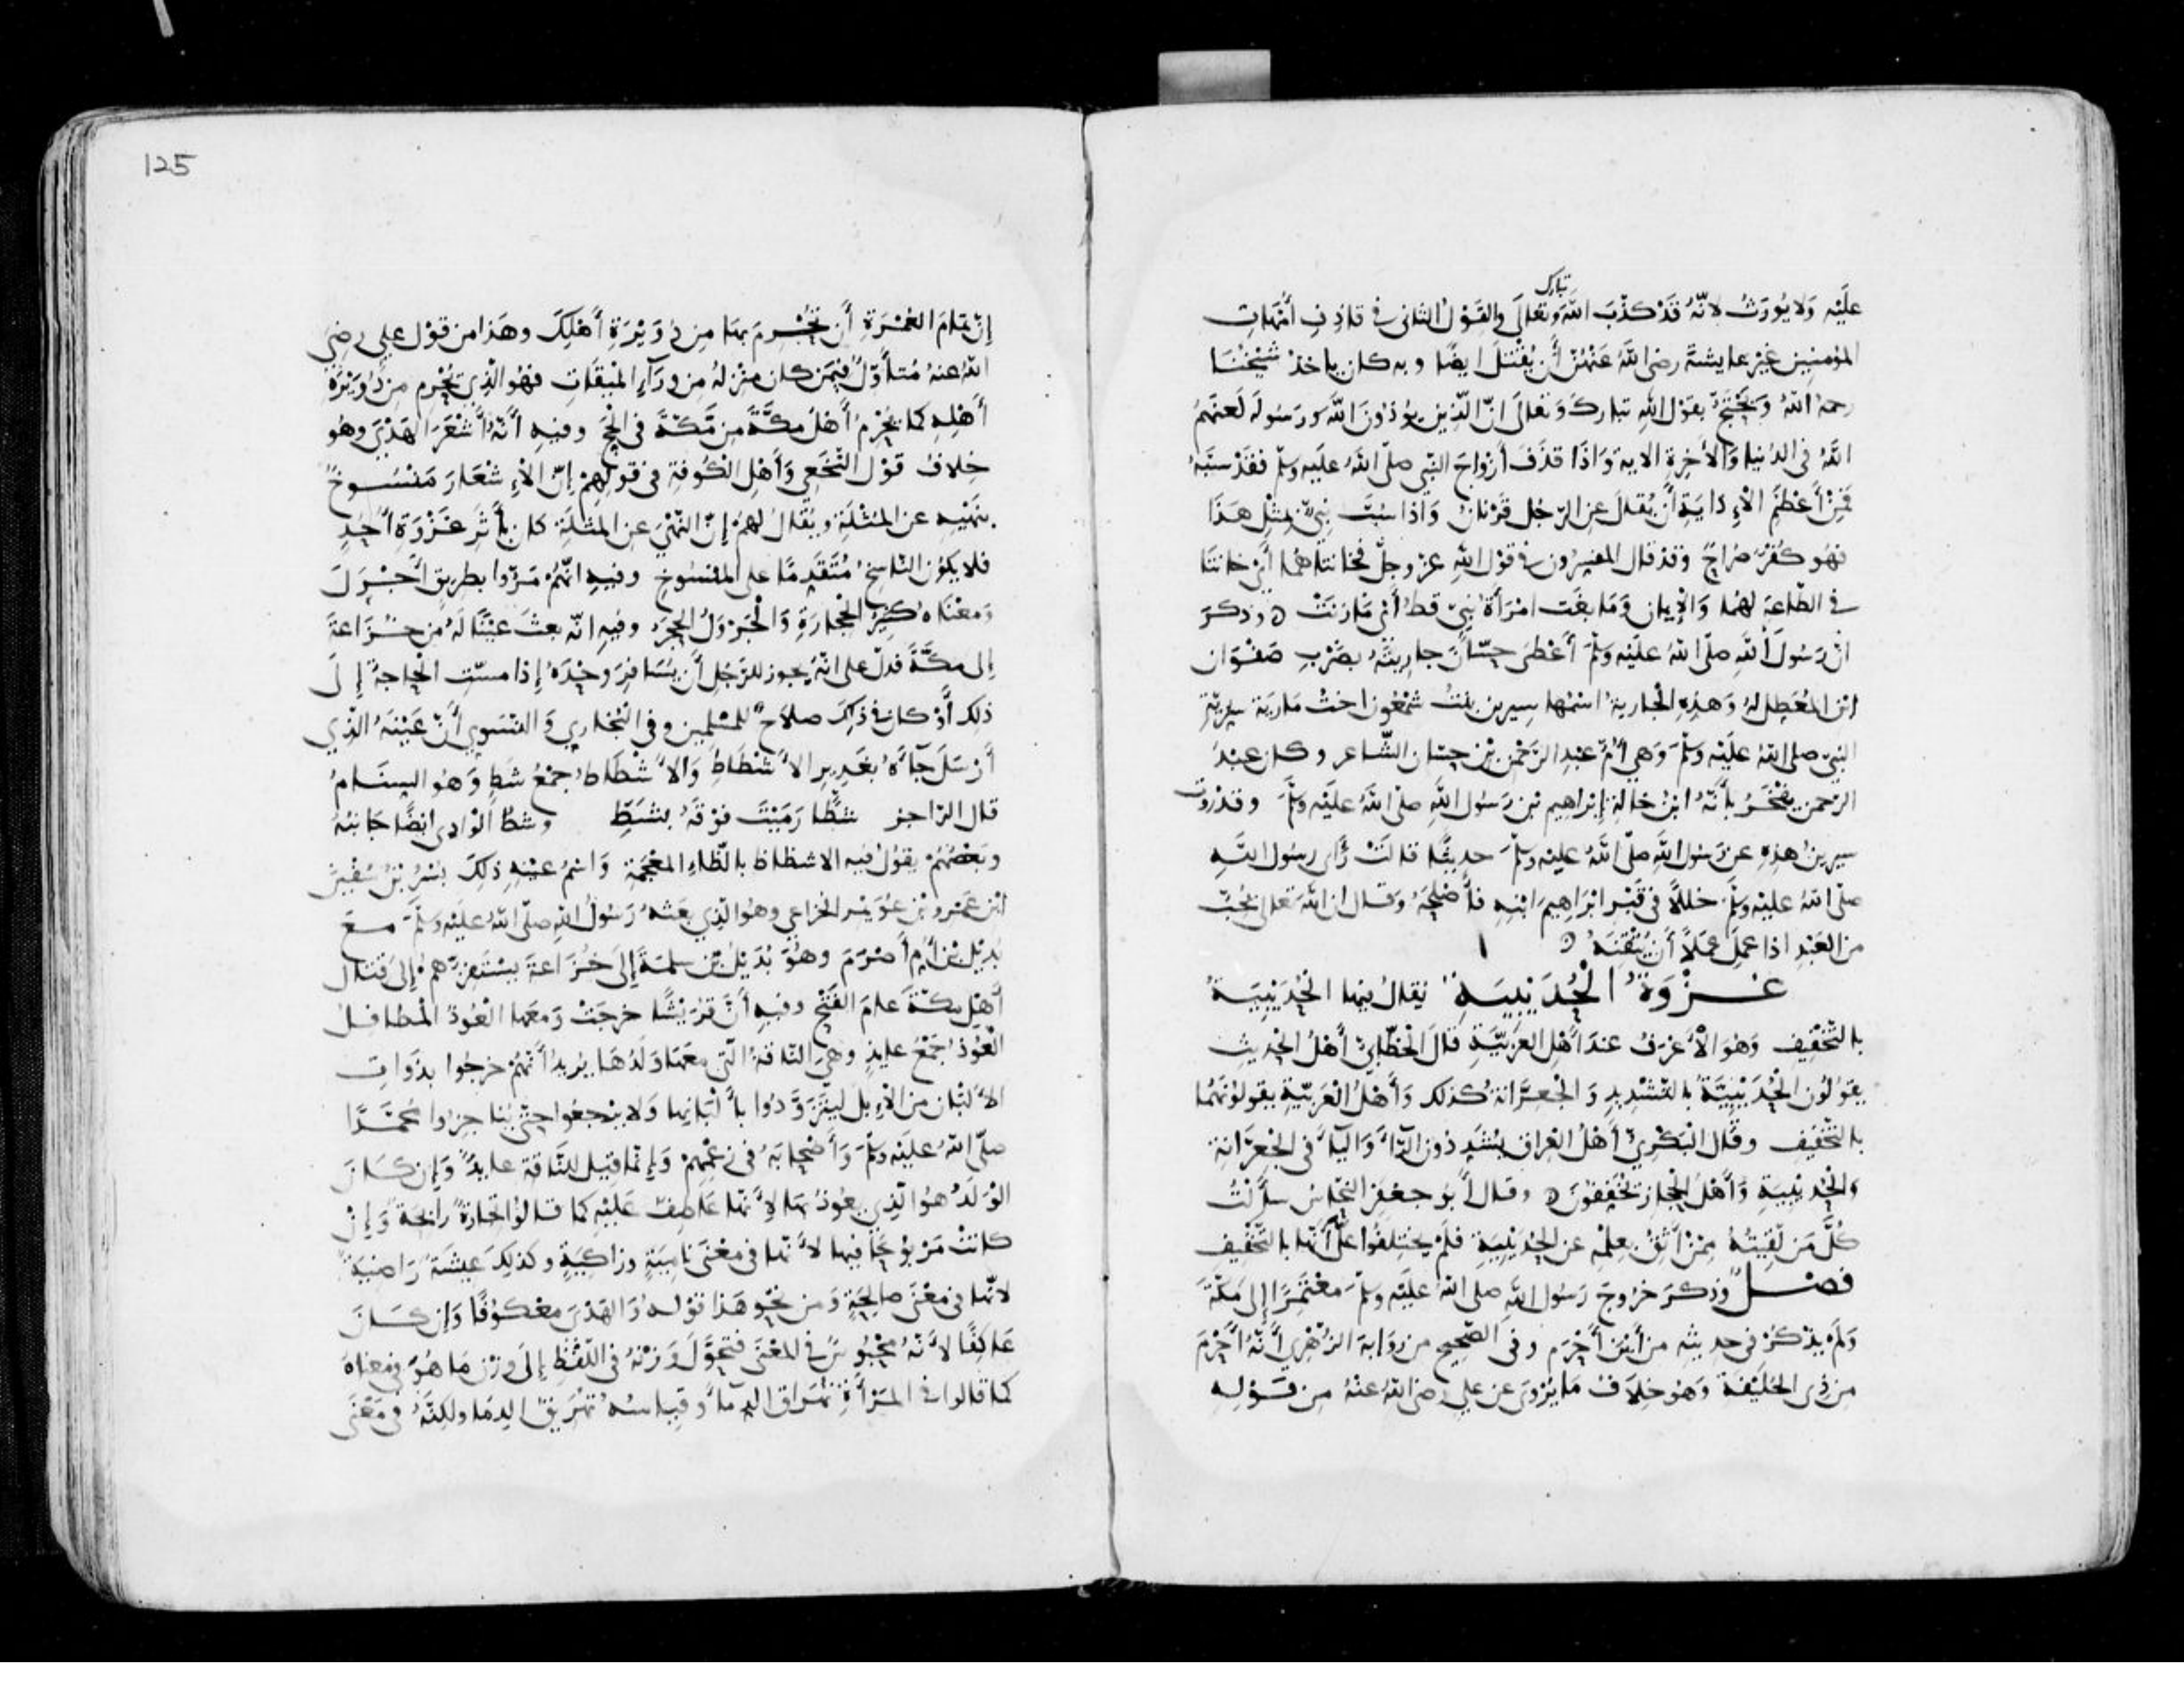 تبارك
عَلَيْه وَلا يُورَثُ لانّهُ قَدْ كذّبَ اللهَ وتعَالَى والقَوْلُ الثانى فى قاذِفِ أُمّهاتِ
المؤمنين غيْر عايشةَ رضى اللهُ عَنهُنّ أن يُقْتلَ ايضًا وبه كان ياخذ شيْخُنَا
رحمهُ اللهُ وَيحْتَجّ بقوْل اللهِ تباركَ وَتعَالَى انّ الّذين يؤذونَ اللهَ وَرَسُولَه لَعنَهمُ
اللهُ فى الدنيا وَالأخرةِ الاية وَاذَا قذَفَ أزْواجَ النّبى صلّى اللهُ عليه وسلّم فقدْ سَبّهُ
فمِنْ أعْظمِ الإذايَةِ أن يُقالَ عن الرّجُل قرْنانُ وَاذا سُبّ نبىٌّ بمثْلِ هذَا
فهُو كُفرٌ صُراحٌ وَقد قال المفسّرون فى قوْل اللهِ عزّ وجلّ فخانتاهُما أىْ خانتَا
فى الطّاعة لهُما وَالإيمان وَمَا بغَت امْرَأةُ نبىٍّ قطُّ أىْ مَا زنَتْ ه وذكرَ
انّ رَسُولَ اللهِ صلّى اللهُ عليْه وَسَلّمَ أعْطى حسّانَ جاريتَهُ بضَرْبِ صَفْوَان
ابن المعَطل لهُ وَهذِهِ الجارِيةُ اسْمُها سِيرين بنتُ شمْعُون اختُ مَارِيَة سرّيّةِ
النبىّ صلى اللهُ عليْه وسلّمَ وَهى أمُّ عبدِ الرّحْمن بْن حسّان الشّاعر وكان عبْدُ
الرّحمن يفْخَرُ بأنّهُ ابنُ خالةِ إبْراهيم بْن رَسُول اللهِ صلّى اللهُ عليْه وسلّمَ وقد رَوَت
سيرينُ هذِهِ عن رَسُول اللهِ صلّى اللهُ عليْه وسلّمَ حديثًا قالَتْ رَأى رسول اللهِ
صلّى اللهُ عليْه وسلّمَ خللاً فى قَبْر ابْرَاهيمَ ابْنِهِ فأصْلحَهُ وَقال ان اللهَ تعالى يُحِبّ
من العَبْدِ اذا عملَ عَملاً أن يُتْقنَهُ ه
غَزْوَةُ الْحُدَيْبِيَةِ يقالُ فيها الحُدَيْبِيَةُ
بالتّخْفيف وَهُوَ الأعْرَفُ عندَ أهْل العَرَبيّةِ قالَ الخطّابىُّ أهْلُ الحديثِ
يقولُون الحُدَيْبِيّةُ بالتشْديدِ وَالجِعِرّانةُ كذلك وَأهْلُ العَرَبيّةِ يقولونَهُما
بالتّخْفيف وقال البَكْرِىُّ أهْلُ العِراق يُشدّدُونَ الرّاءَ وَاليَاءَ فى الجِعِرّانةِ
وَالحُديْبِيَةِ وَأهْلُ الحِجاز يُخفّفُونَ ه وقال أبُو جعْفَر النحّاسُ سَألْتُ
كُلّ مَن لَقيتُهُ ممّنْ أثِقُ بعِلْمِهِ عن الحُديْبِيَةِ فلَمْ يخْتلفُوا علىّ أنّها بالتّخْفِيفِ
فصْلٌ وَذكرَ خرُوجَ رَسُول اللهِ صلى اللهُ عليْه وسلّمَ معْتَمِرًا إلى مَكّةَ
وَلَمْ يذْكُرْ فى حديثه من أيْنَ أحْرَم وفى الصّحيح من رِوَايةِ الزّهْرِى أنّهُ أحْرَمَ
من ذِى الحُليْفَة وَهُو خِلاَف مَا يُرْوَى عن علىٍّ رضى اللهُ عنْهُ مِن قَوْلِهِ
125
إنّ تمَامَ العُمْرَةِ أن تُحْرِمَ بهَا مِن دُوَيْرَةِ أهْلِكَ وهَذا من قوْل علىّ رضِىَ
اللهُ عنهُ مُتأوَّلٌ فيمَن كان منْزلهُ من وَرَاءِ المِيقاتِ فهُو الّذِى يُحْرِم من دُوَيْرةِ
أهْلِهِ كما يُحْرِمُ أهْلُ مكّةَ من مّكّةَ فى الحجّ وفيهِ أنّهُ أشْعَرَ الهَدْىَ وهُو
خِلافُ قوْل النّخَعِى وَأهْل الكُوفةِ فى قولِهِمْ إنّ الإشْعارَ مَنْسُوخٌ
بنَهْيِهِ عن المُثْلَةِ ويُقالُ لهُمْ إنّ النّهْىَ عن المُثْلَةِ كان بأثَرِ غَزْوَةِ أُحُدٍ
فلا يكُون النّاسِخُ مُتَقَدِّمًا على المنْسُوخِ وفيهِ انّهُمْ مَرّوا بطريقٍ أجْرَلَ
وَمعْنَاهُ كثيرُ الحِجارَةِ وَالجَرْوَلُ الحَجَرُ وفيهِ انّه بعثَ عيْنًا لهُ من خُزَاعةَ
إلى مكّةَ فدلّ على انّهُ يجوز للرّجُلِ أن يُسَافِرَ وحْدَهُ إذا مسّتِ الحَاجةُ إلَى
ذلك أوْ كان فى ذلِكَ صلاَحٌ للمسْلِمِين وفى البُخارِى وَالنّسَوِى أنّ عَيْنَهُ الّذِى
أرْسَلَ جآءَهُ بغَدِيرِ الأشْطَاطِ وَالأشْطَاطُ جمْعُ شَطٍّ وَهُو السنَامُ
قال الرّاجز شَطًّا رَمَيْتَ فوْقَهُ بشَطِّ وشطُّ الوَادِى ايضًا جَانبُهُ
وَبَعْضُهُمْ يقولُ فيه الاشظاظ بالظّاءِ المعْجَمةِ وَاسْمُ عيْنِهِ ذلِكَ بُسْرُ بْنُ سُفْيَن
ابْن عَمْرِو بْن عُوَيْمر الخزاعى وهُو الّذِى بعَثهُ رَسُولُ اللهِ صلّى اللهُ عليْه وسلّمَ مَعَ
بُدَيْل بْن أُمّ أصْرَمَ وهُوَ بُدَيْلُ بْن سلمةَ إلَى خُزَاعةَ يسْتَنفِرُهمُ إلى قتال
أهْل مكّةَ عامَ الفَتْحِ وفيهِ أنّ قرَيْشًا خرجَتْ وَمعَها العُوذُ المَطافيل
العُوذُ جمْعُ عايذٍ وهىَ النّاقةُ الّتى معَها وَلَدُهَا يُرِيدُ أنّهُمْ خرجُوا بذَوَاتِ
الألْبَان من الإبلِ ليَتزَوّدُوا بألْبَانِها وَلا يرْجعُوا حتّى يُناجزوا مُحَمّدًا
صلّى اللهُ عليْه وسلّمَ وَأصْحابَهُ فى زعْمِهِمْ وَإنّما قيل للنّاقة عايذٌ وَإن كانَ
الوَلَدُ هُوَ الّذِى يعُوذُ بهَا لأنّها عَاطِفٌ عَليْهِ كما قالوا تجارَةٌ رابحَةٌ وَإنْ
كانَتْ مَرْبُوحًا فيها لأنّها فى معْنَى نامِيَةٍ وزاكِيَةٍ وكذلِكَ عيشَةٌ رَاضيَةٌ
لأنّها فى معْنَى صالِحَةٍ وَمن نحْو هَذَا قوْلهُ وَالهَدْىَ معْكُوفًا وَإن كانَ
عَاكِفًا لأنّهُ مَحْبُوسٌ فى المعْنَى فتحَوّلَ وَزْنهُ فى اللّفْظِ إلَى وزْن مَا هُوَ فى معناهُ
كما قالوا فى المَرْأةِ تُهَراق الدّمآءَ وقياسُهُ تُهَرِيقُ الدِّما ولكِنّهُ فى مَعْنَى